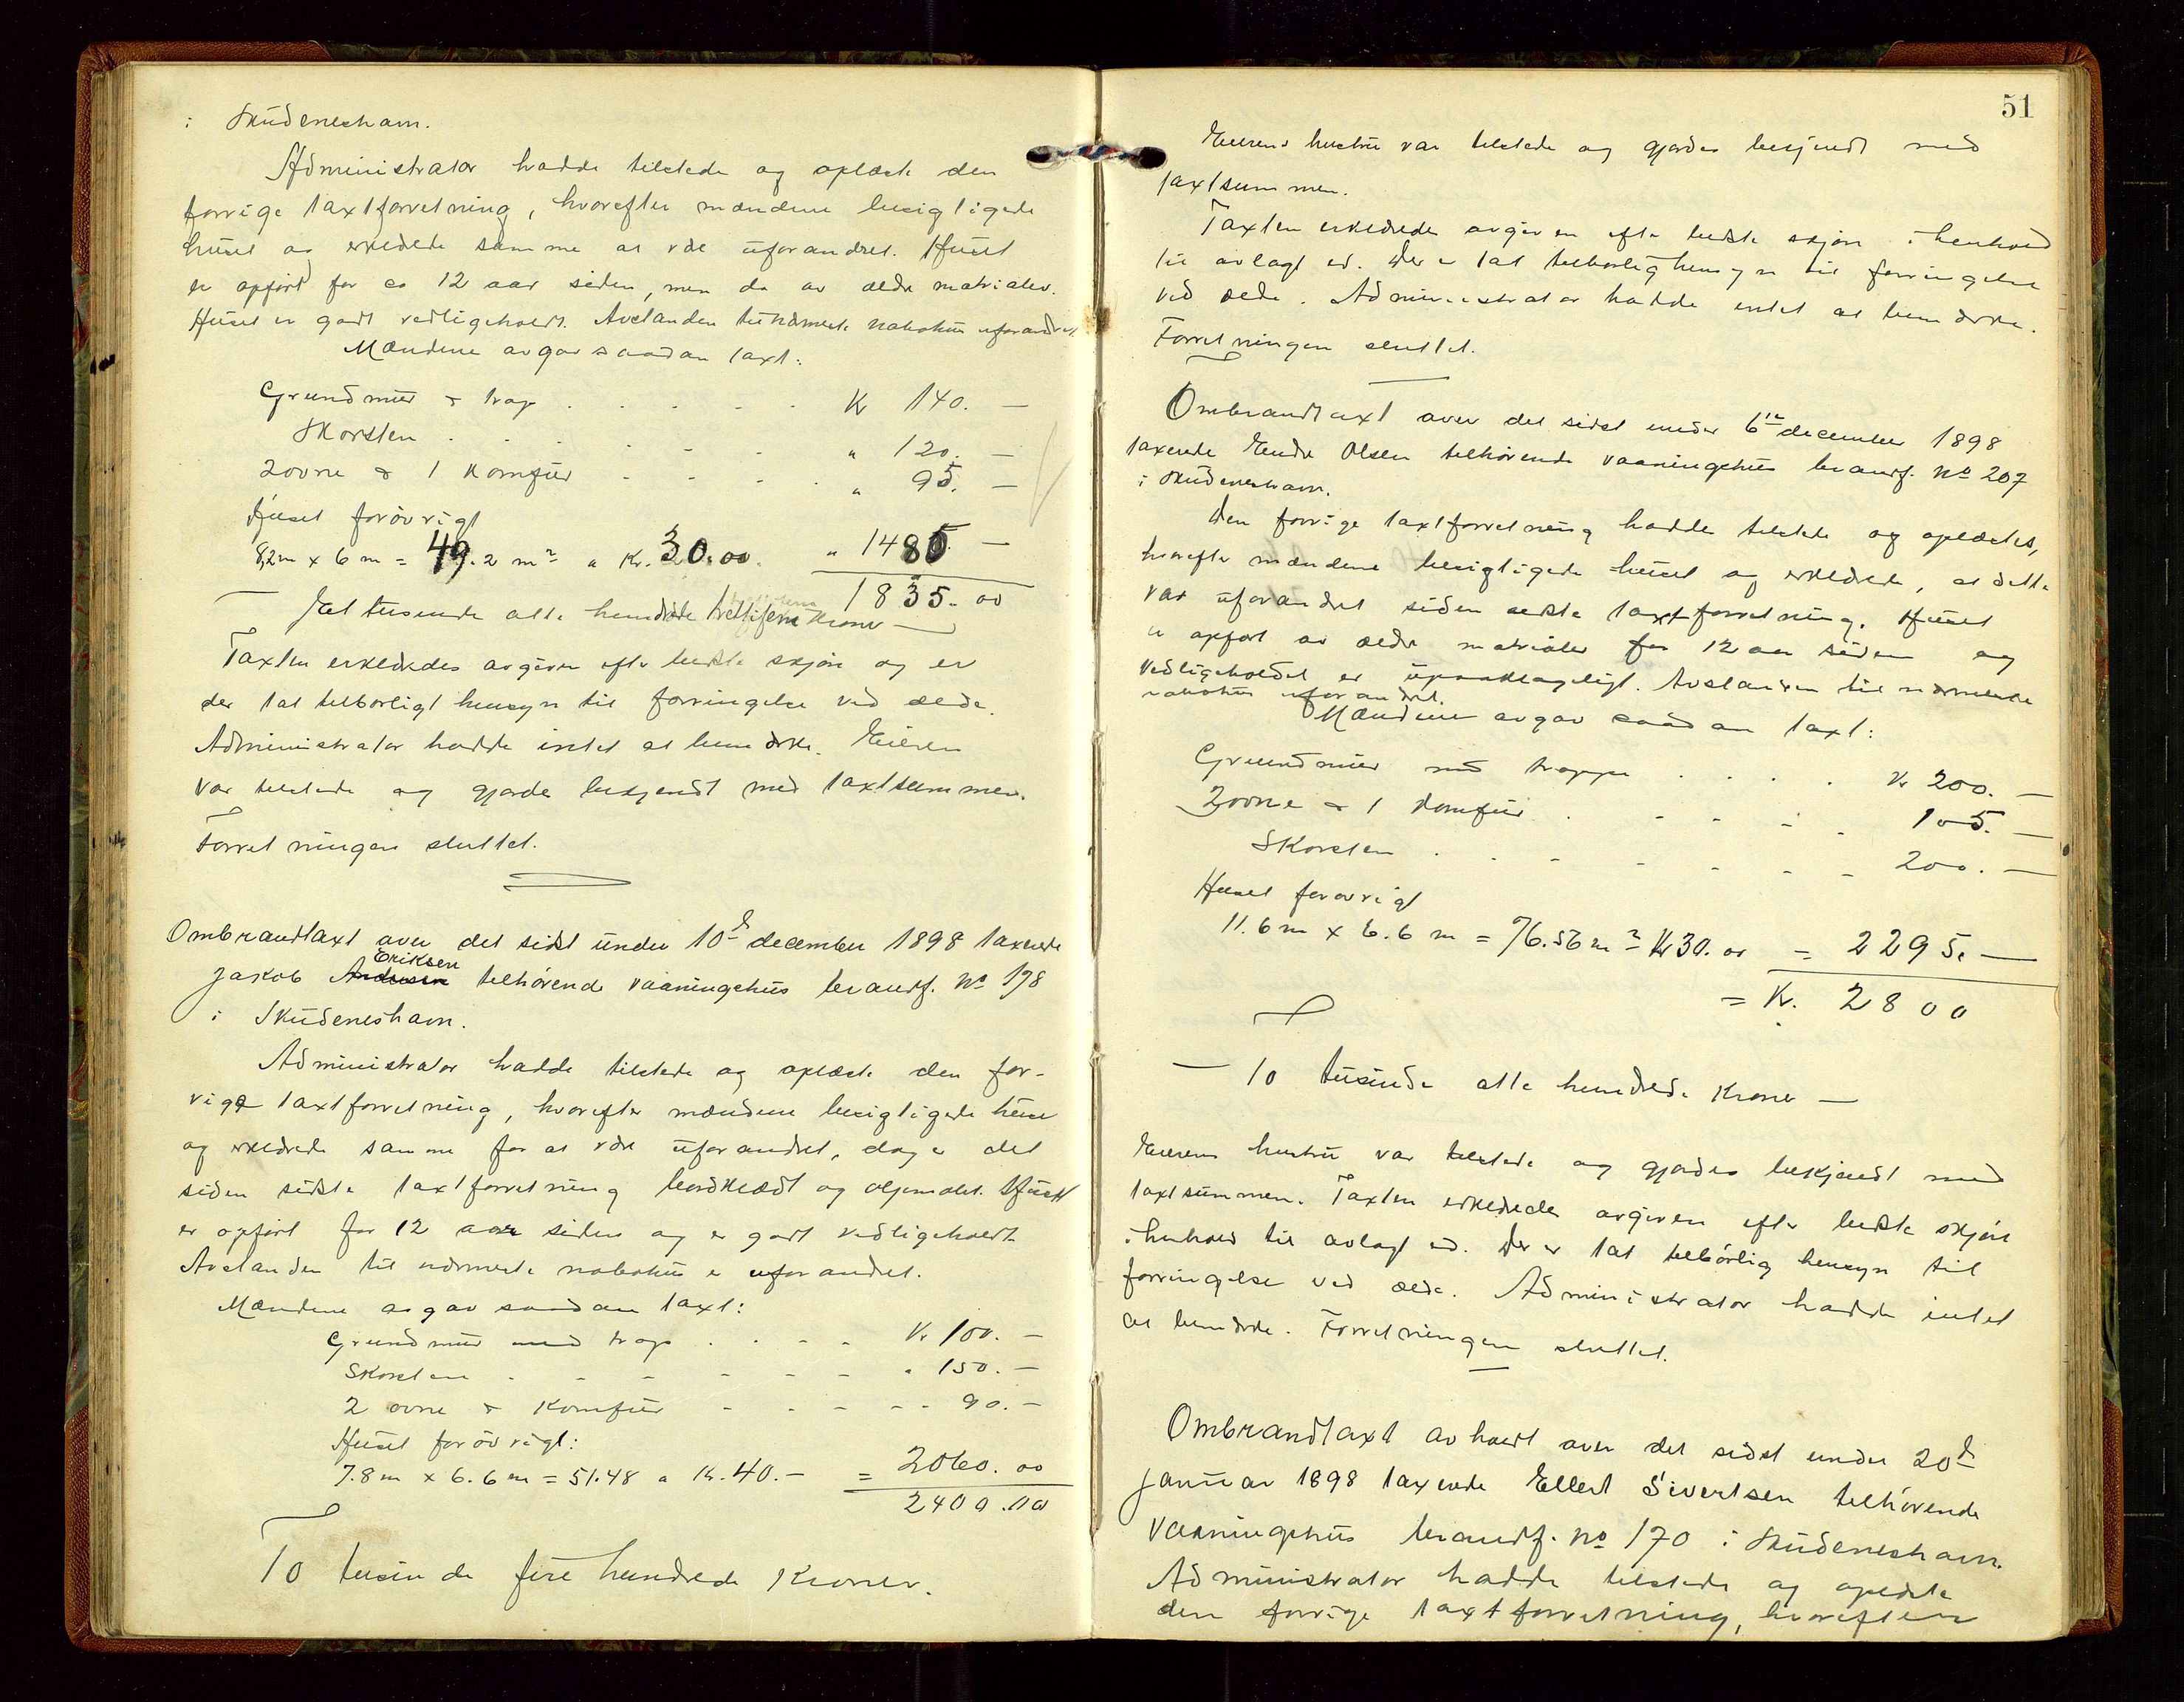 i Skudeneshavn.
Administrator hadde tilstede og oplæste den
forrige taxtforretning, hvorefter mændene besigtigede
huset og erklærede samme at være uforandret. Huset
er opført for ca 12 aar siden, men da av ældre matrialer.
Huset er godt vedligeholdt. Avstanden til nærmeste nabohus uforandret.
Mændene avgav saadan taxt:
Grundmur & trap . . . . . Kr 140. —
Skorsten . . . . . . " 120. —
2 ovne & 1 Komfur . . . . " 95. —
Huset forøvrigt
8,2m x 6 m = 49.2 m² a Kr. 30.00. " 1480. —
1835. 00
— Et tusende otte hundrede trettifem Kroner —
Taxten erklærdes avgiven efter bedste skjøn og er
der tat tilbørligt hensyn til forringelse ved ælde.
Administrator hadde intet at bemærke. Eieren
var tilstede og gjordes bekjendt med taxtsummen.
Forretningen sluttet.
Ombrandtaxt over det sidst under 10de december 1898 taxerede
Eriksen
Jakob Andersen tilhørende vaaningshus brandf. No 178
i Skudeneshavn.
Administrator hadde tilstede og oplæste den for-
rige taxtforretning, hvorefter mændene besigtigede huset
og erklærede samme for at være uforandret, dog er det
siden sidste taxtforretning bordklædt og oljemalet. Huset
er opført for 12 aar siden og er godt vedligeholdt.
Avstanden til nærmeste nabohus er uforandret.
Mændene avgav saadan taxt:
Grundmur med trap . . . . Kr 100. —
Skorsten . . . . . . " 150. —
2 ovne & Komfur . . . . . 90. —
Huset forøvrigt:
7.8 m x 6.6 m = 51.48 a Kr. 40. — = 2060. 00
2400.00
To tusinde fire hundrede Kroner.
51
Eierens hustru var tilstede og gjordes bekjendt med
taxtsummen.
Taxten erklærede avgiven efter bedste skjøn i henhold
til avlagt ed. Der er tat tilbørlig hensyn til forringelse
ved ælde. Administrator hadde intet at bemærke.
Forretningen sluttet.
Ombrandtaxt over det sidst under 6te december 1898
taxerede Endre Olsen tilhørende vaaningshus brandf. No 207
i Skudeneshavn.
Den forrige taxtforretning hadde tilstede og oplæstes,
hvorefter mændene besigtigede huset og erklærede, at dette
var uforandret siden sidste taxtforretning. Huset
er opført av ældre matrialer for 12 aar siden og
vedligeholdet er upaaklageligt. Avstanden til nærmeste
nabohus uforandret.
Mændene avgav saadan taxt:
Grundmur med trappe . . . . Kr 200. —
2 ovne & 1 Komfur . . . . . 105. —
Skorsten . . . . . . 200. —
Huset forøvrigt
11.6 m x 6.6 m = 76.56 m² Kr 30. 00 = 2295. —
= Kr. 2800
— To tusinde otte hundrede Kroner —
Eierens hustru var tilstede og gjordes bekjendt med
taxtsummen. Taxten erklærede avgiven efter bedste skjøn
i henhold til avlagt ed. Der er tat tilbørlig hensyn til
forringelse ved ælde. Administrator hadde intet
at bemærke. Forretningen sluttet.
Ombrandtaxt avholdt over det sidst under 20de
januar 1898 taxerede Ellert Sivertsen tilhørende
vaaningshus brandf. No 170 i Skudeneshavn.
Administrator hadde tilstede og oplæste
den forrige taxtforretning, hvorefter